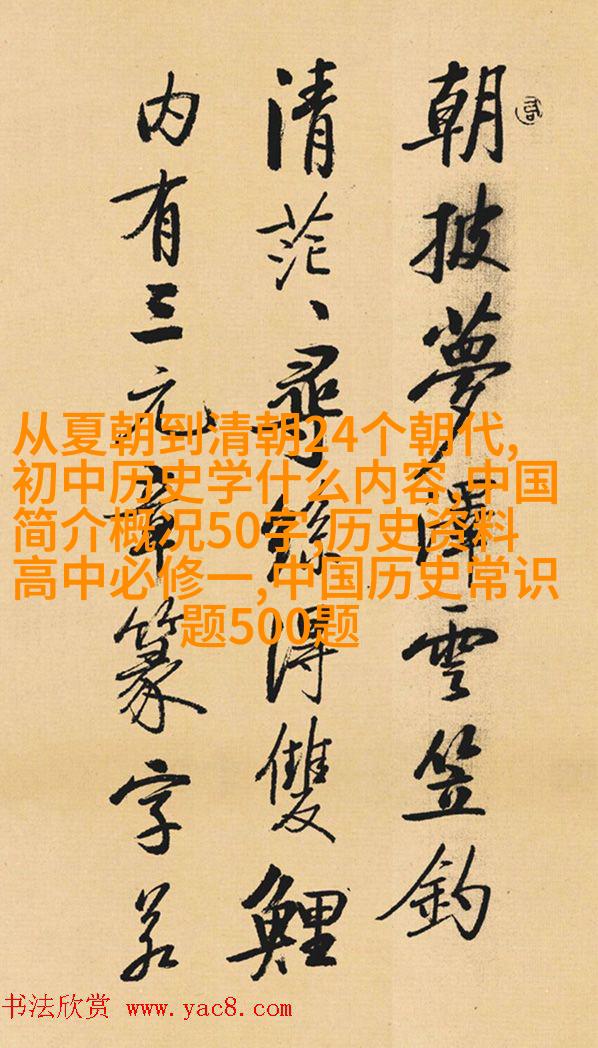 朝披夢澤雲笠釣
清茫、尋絲得雙鯉
内有三元章篆字若
从夏朝到清朝24个朝代,
初中历史学什么内容,中国
简介概况50字,历史资料
高中必修一,中国历史常识
题500题
书法欣赏 www.yac8.com